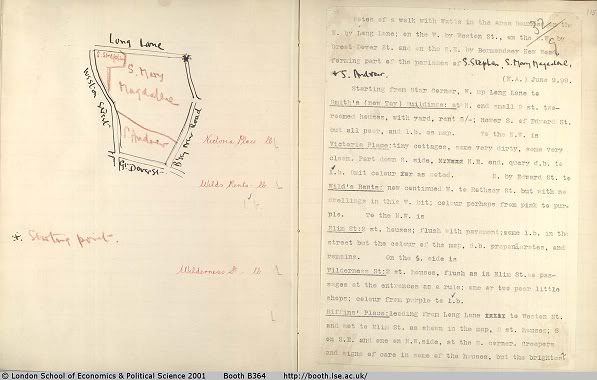 Long Lane
S. Stephen
S. Mary
Magdalene
Weston Street
S. Andrew
Bky New Road
Gt Dover St
Victoria Place lb
Wilds Rents. lb
* Starting point.
Wilderness St. lb
115
Notes of a walk with Watts in the area bounded on the
N. by Long Lane; on the W. by Weston St., on the S.W. by
Great Dover St. and on the S.E. by Bermondsey New Road
forming part of the parishes of S. Stephen, S. Mary Magdalene,
+ S. Andrew.
(E.A.) June 9.99.
Starting from Star Corner, W. up Long Lane to
Smith's (now Toy) Buildings: at E. end small 2 st. two-
roomed houses, with yard, rent 5/-; Bower S. of Edward St.
out all poor, and l.b. as map. To the N.W. is
Victoria Place: tiny cottages, some very dirty, some very
clean. Part down S. side, N.E. and query d.b. to
l.b. Exit colour as noted. E. by Edward St. to
Wild's Rents: now continued W. to Rothsay St. but with no
dwellings in this W. bit; colour perhaps from pink to pur-
ple. To the N.W. is
Elim St: 2 st. houses; flush with pavement; some l.b. in the
street but the colour of the map, d.b. preponderates, and
remains. On the S. side is
Wilderness St: 2 st. houses, flush as in Elim St. as pas-
sages at the entrances as a rule; one or two poor little
shops; colour from purple to l.b.
Giffins' Place: leading from Long Lane to Weston St.
and not to Elim St. as shown in the map, 2 st. houses; 5
on S.E. and one on N.W. side, at the S. corner. Creepers
and signs of care in some of the houses, but the brightest
© London School of Economics & Political Science 2001 Booth B364 http://booth.lse.ac.uk/